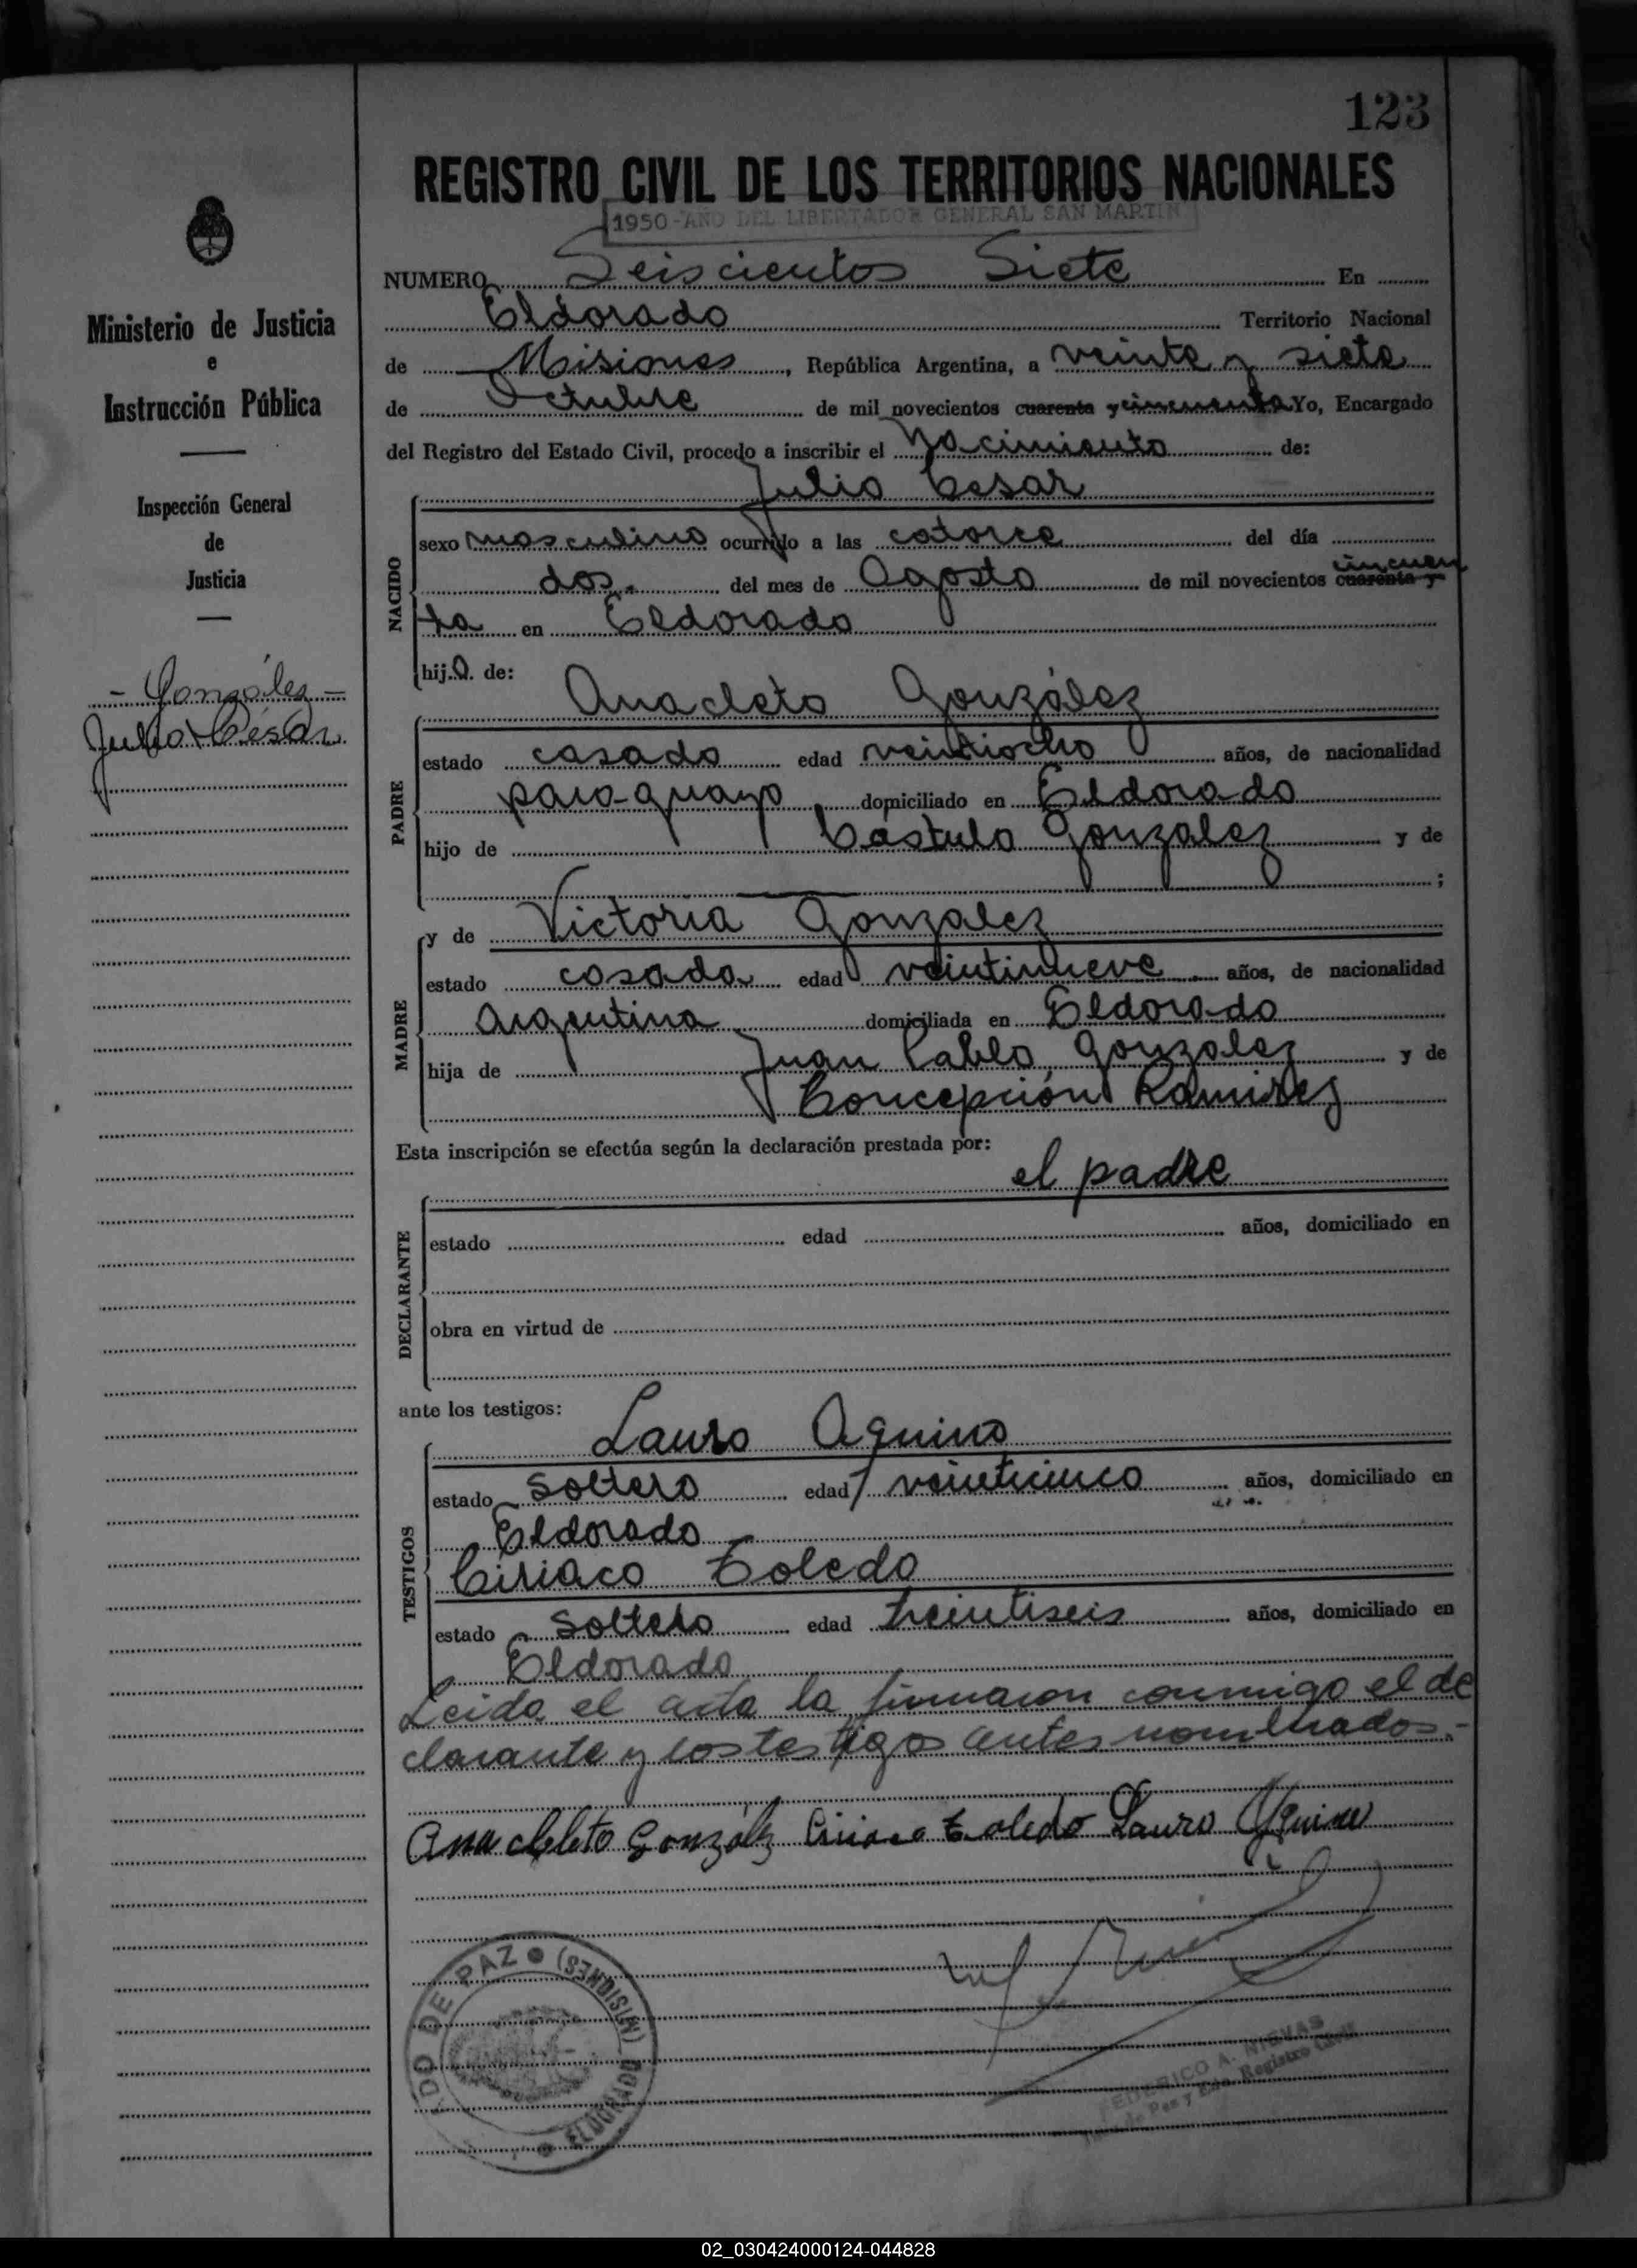 123
REGISTRO CIVIL DE LOS TERRITORIOS NACIONALES
1950 - AÑO DEL LIBERTADOR GENERAL SAN MARTIN
Ministerio de Justicia
e
Instrucción Pública
Inspección General
de
Justicia
- González -
Julio César
NUMERO Seiscientos Siete En
Eldorado Territorio Nacional
de Misiones, República Argentina, a veinte y siete
de Octubre de mil novecientos cuarenta y cincuenta Yo, Encargado
del Registro del Estado Civil, procedo a inscribir el Nacimiento de:
Julio Cesar
NACIDO
sexo masculino ocurrido a las catorce del día
dos. del mes de Agosto de mil novecientos cuarenta y cincuen
ta en Eldorado
hij.o. de:
Anacleto González
PADRE
estado casado edad veintiocho años, de nacionalidad
paraguayo, domiciliado en Eldorado
hijo de Cástulo Gonzalez y de
;
MADRE
y de Victoria Gonzalez
estado casada edad veintinueve años, de nacionalidad
Argentina domiciliada en Eldorado
hija de Juan Pablo Gonzalez y de
Concepción Ramirez
Esta inscripción se efectúa según la declaración prestada por:
el padre
DECLARANTE
estado edad años, domiciliado en
obra en virtud de
ante los testigos:
Lauro Aquino
TESTIGOS
estado soltero edad veinticinco años, domiciliado en
Eldorado
Ciriaco Toledo
estado soltero edad treintiseis años, domiciliado en
Eldorado
Leida el acta la firmaron conmigo el de
clarante y los testigos antes nombrados.-
Anacleto González Ciriaco Toledo Lauro Aquino
DO DE PAZ (MISIONES) ELDORADO
FEDERICO A. NIEVAS
de Paz y Registro Civil
02_030424000124-044828